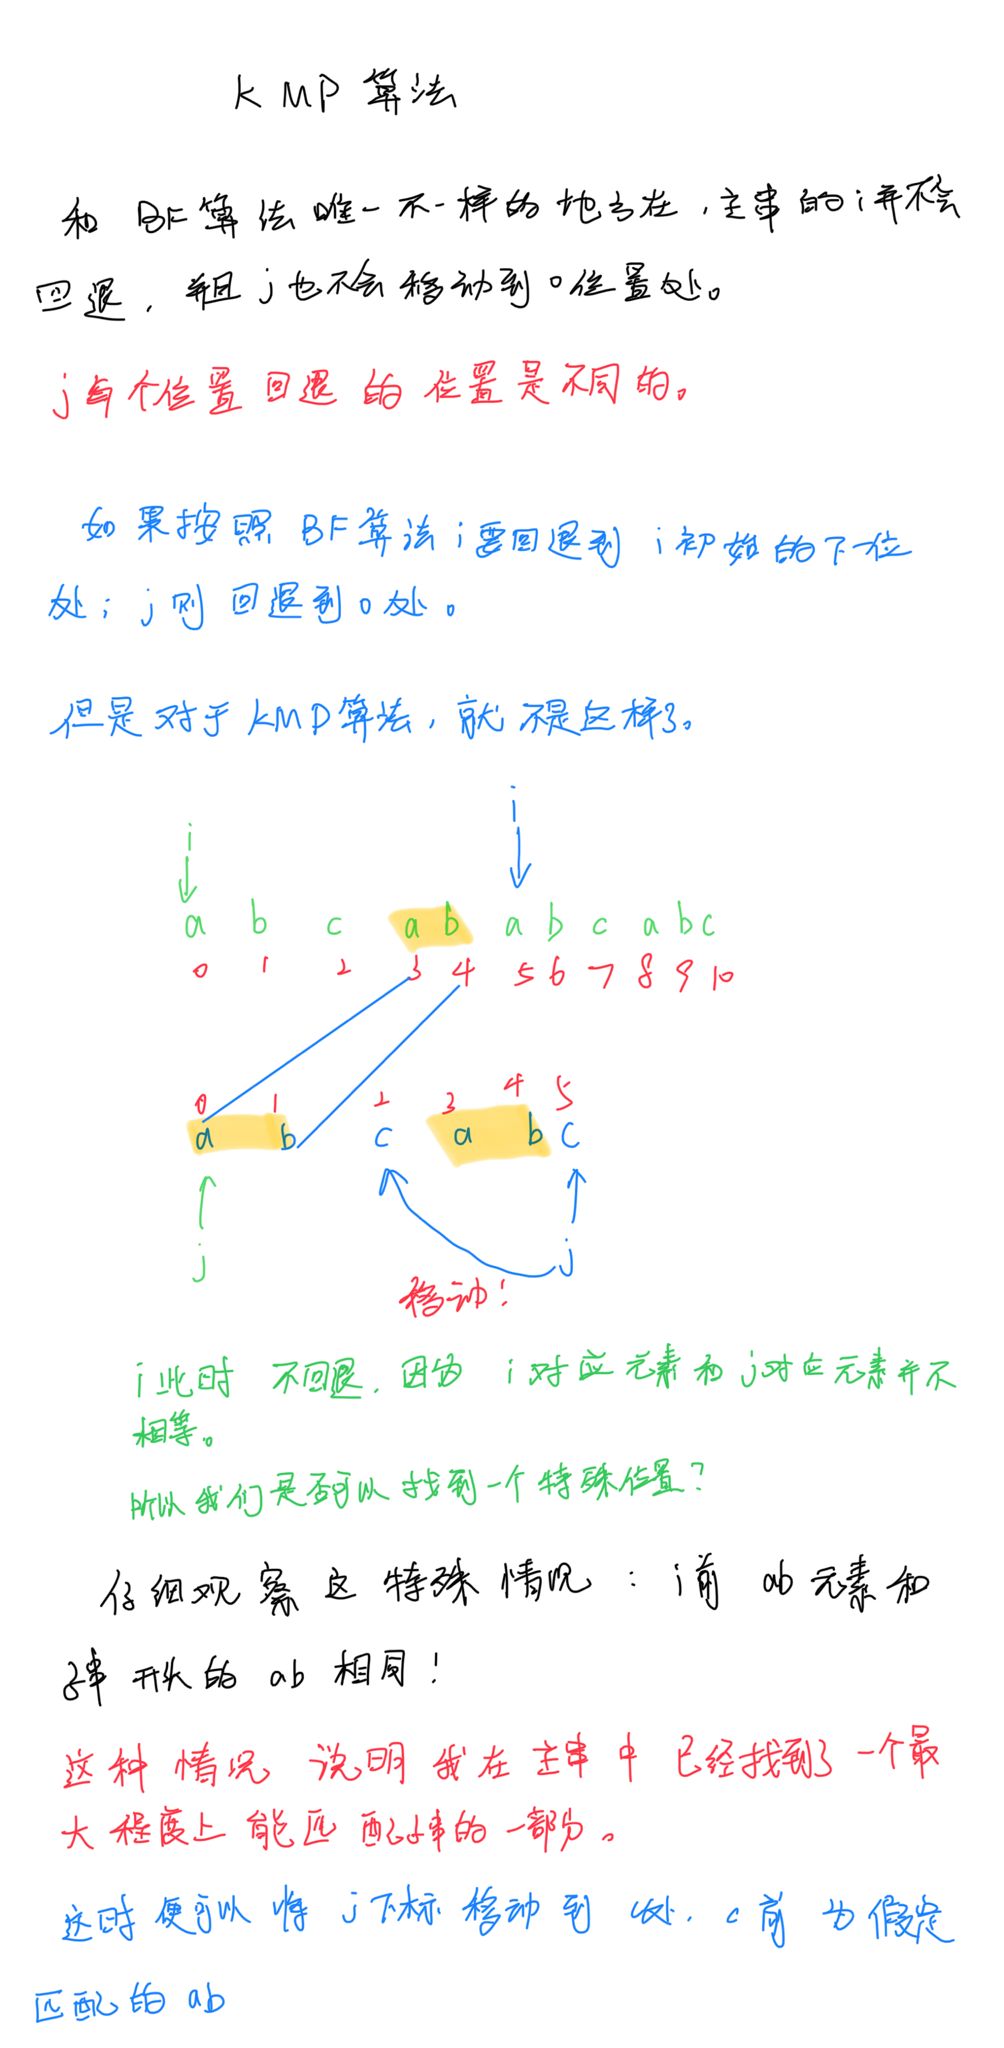 KMP 算法
和 BF算法唯一不一样的地方在，主串的i并不会
回退，并且j也不会移动到0位置处。
j每个位置回退的位置是不同的。
如果按照BF算法i要回退到i初始的下一位
处；j则回退到0处。
但是对于KMP算法，就不是这样了。
i
i
a b c a b a b c a b c
0 1 2 3 4 5 6 7 8 9 10
0 1 2 3 4 5
a b c a b c
j j
移动！
i此时 不回退，因为 i对应元素和j对应元素并不
相等。
所以我们是否可以找到一个特殊位置？
仔细观察这特殊情况：i前 ab元素和
子串开头的ab相同！
这种情况说明我在主串中已经找到了一个最
大程度上能匹配子串的一部分。
这时便可以将j下标移动到c处，c前为假定
匹配的ab